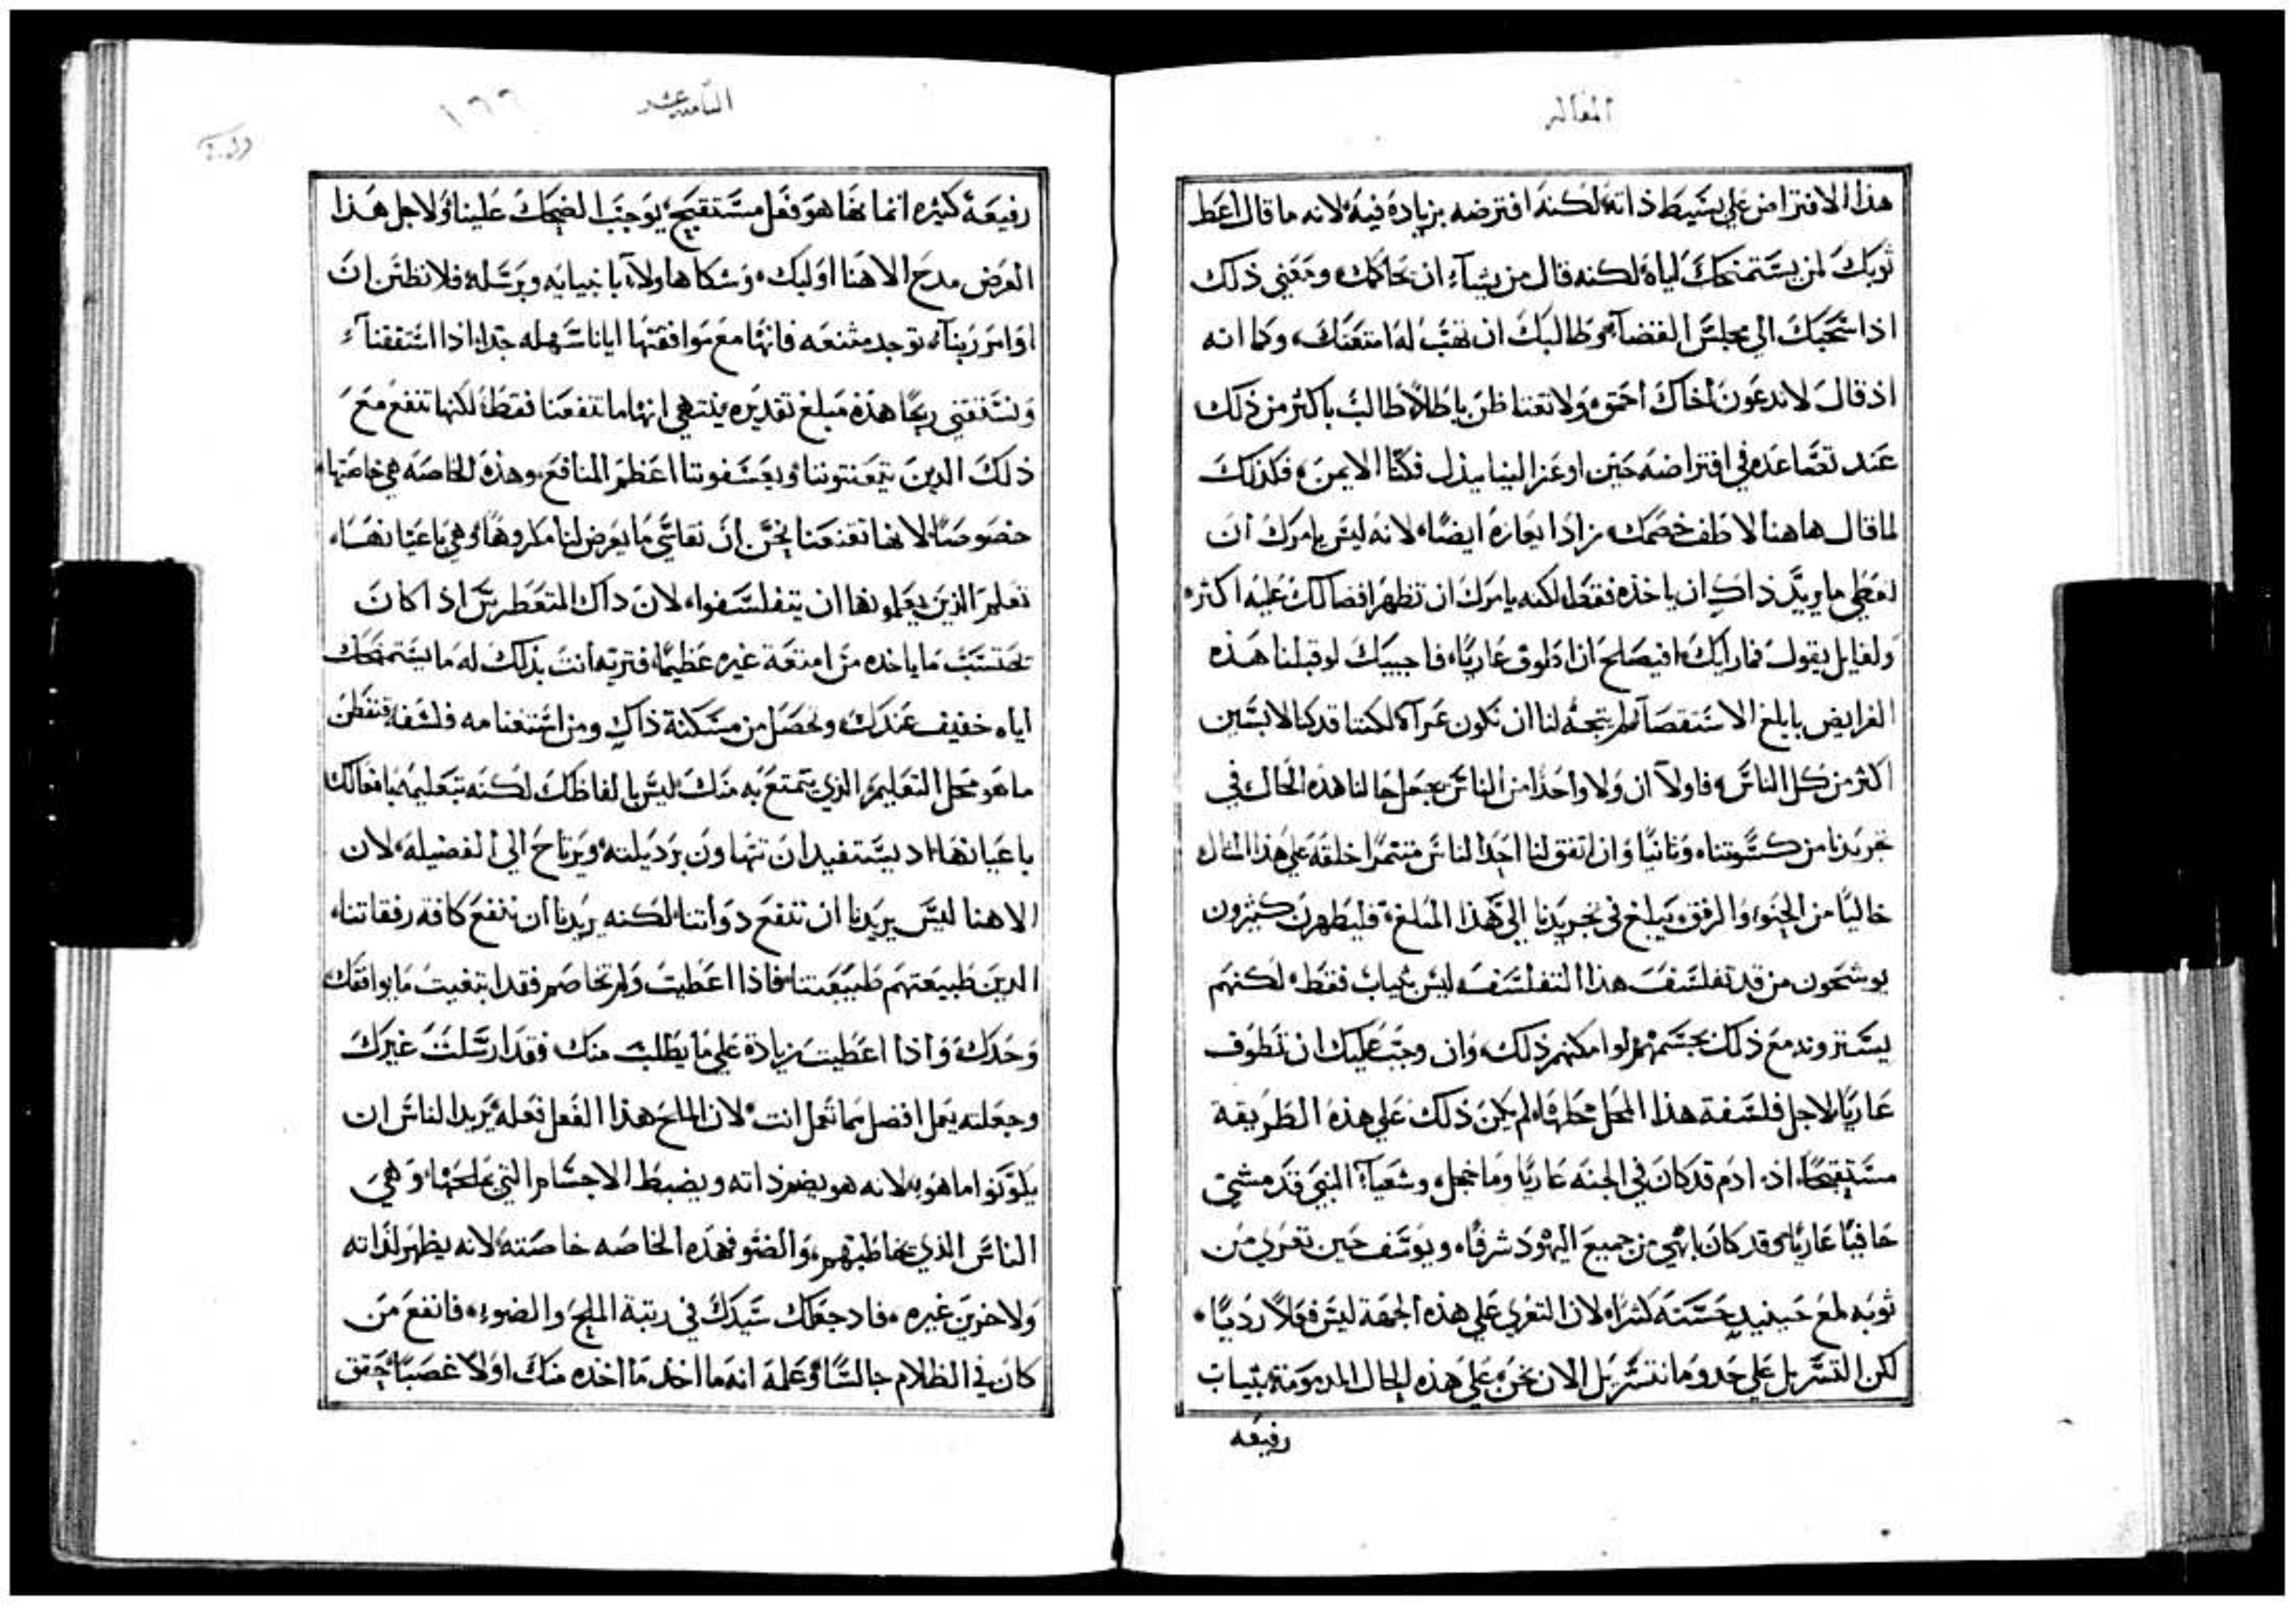 المقاله
هذا الافتراض علي بسيط ذاته لكنه افترضه بزيادة فيه لانه ما قال اعط
ثوبك لمن يستمنحك اياه لكنه قال من يشاء ان يحاكمك ومعني ذلك
اذا سحبك الي مجلس القضاء وطالبك ان تهب له امتعتك، وكما انه
اذ قال لا تدعون اخاك احمق ولا تغتاظن باطلا طالب باكثر من ذلك
عند تصاعده في افتراضه حين اوعز الينا ببذل فكنا الايمن، فكذلك
لما قال هاهنا لاطف خصمك، زاد ايعازه ايضا، لانه ليس يامرك ان
تعطي ما يريد ذاك ان ياخذه فقط، لكنه يامرك ان تظهر افضالك عليه اكثر،
ولقايل يقول فما رايك افيصلح ان اطوف عاريا، فاجيبك لو قبلنا هذه
الفرايض بابلغ الاستقصاء لم يتجه لنا ان نكون عراة لكننا قد كنا لابسين
اكثر من كل الناس، فاولا ان ولا واحدا من الناس يجعل حالنا هذه الحال في
تجريدنا من كسوتنا، وثانيا وان اتفق لنا احد الناس متنمرا خلقه علي هذا المثال
خاليا من الحنو، والرفق، يبلغ في تجريدنا الي هذا المبلغ، فليظهرن كثيرون
يوشحون من قد تفلسف هذا التفلسف ليس بثياب فقط، لكنهم
يسترونه مع ذلك بجسمهم لو امكنهم ذلك، وان وجب عليك ان تطوف
عاريا لاجل فلسفة هذا المحل محلها، لم يكن ذلك علي هذه الطريقة
مستقبحا، اذ ادم قد كان في الجنه عاريا وما خجل، وشعياء النبي قد مشي
حافيا عاريا، وقد كان ابهي من جميع اليهود شرفا، ويوسف حين تعري من
ثوبه لمع حينيذ حسنه كثيرا، لان التعري علي هذه الجهة ليس فعلا رديا،
لكن التسربل علي حدو ما نتسربل الان نحن، علي هذه الحال المذمومة بثياب
رفيعه
الثامنه عشر
١٦٦
رفيعة كثيره اثمانها هو فعل مستقبح، يوجب الضحك علينا ولاجل هذا
الغرض مدح الاهنا اوليك، وشكا هاولاء بانبيايه وبرسله فلا تظنن ان
اوامر ربنا، توجد ممتنعه فانها مع موافقتها ايانا سهله جدا، اذا استفقنا،
ونستقتني ربحا هذه مبلغ تقديره ينتهي انها ما تنفعنا فقط، لكنها تنفع مع
ذلك الدين يتعنتوننا، ويعسفوننا اعظم المنافع، وهذه الخاصه هي خاصتها،
خصوصا، لانها تقنعنا نحن ان نقاسي ما يعرض لنا مكروها، وهي باعيانها،
تعلم الذين يعملونها ان يتفلسفوا، لان داك المتغطرس اذا كان
يحتسب ما ياخده من امتعة غيره عظيما، فتريه انت بذلك له ما يستمنحك
اياه خفيف عندك، وتحصل من مسكنة ذاك ومن استغنامه فلسفه، فتفطن
ما هو محل التعليم، الذي يتمتع به منك، ليس بالفاظك لكنه بتعليمه بافعالك
باعيانها، اد يستفيد ان يتهاون برديلته ويرتاح الي الفضيله، لان
الاهنا ليس يريدنا ان ننفع دواتنا، لكنه يريدنا ان ننفع كافة رفقاتنا،
الدين طبيعتهم طبيعتنا، فاذا اعطيت ولم تخاصم فقد ابتغيت ما يوافقك
وحدك، واذا اعطيت زيادة علي ما يطلب منك فقد ارسلت غيرك
وجعلته يعمل افضل مما تعمل انت، لان الملح هذا الفعل فعله يريد الناس ان
يكونوا ما هو به لانه هو يضم ذاته ويضبط الاجسام التي يملحها، وهي
الناس الذي تخاطبهم، والضو فهذه الخاصه خاصته، لانه يظهر لذاته
ولاخرين غيره، فاد جعلك سيدك في رتبة الملح والضوء، فانفع من
كان في الظلام جالسا، وعلمه انه ما اخد ما اخذه منك اولا غصبا، حقق